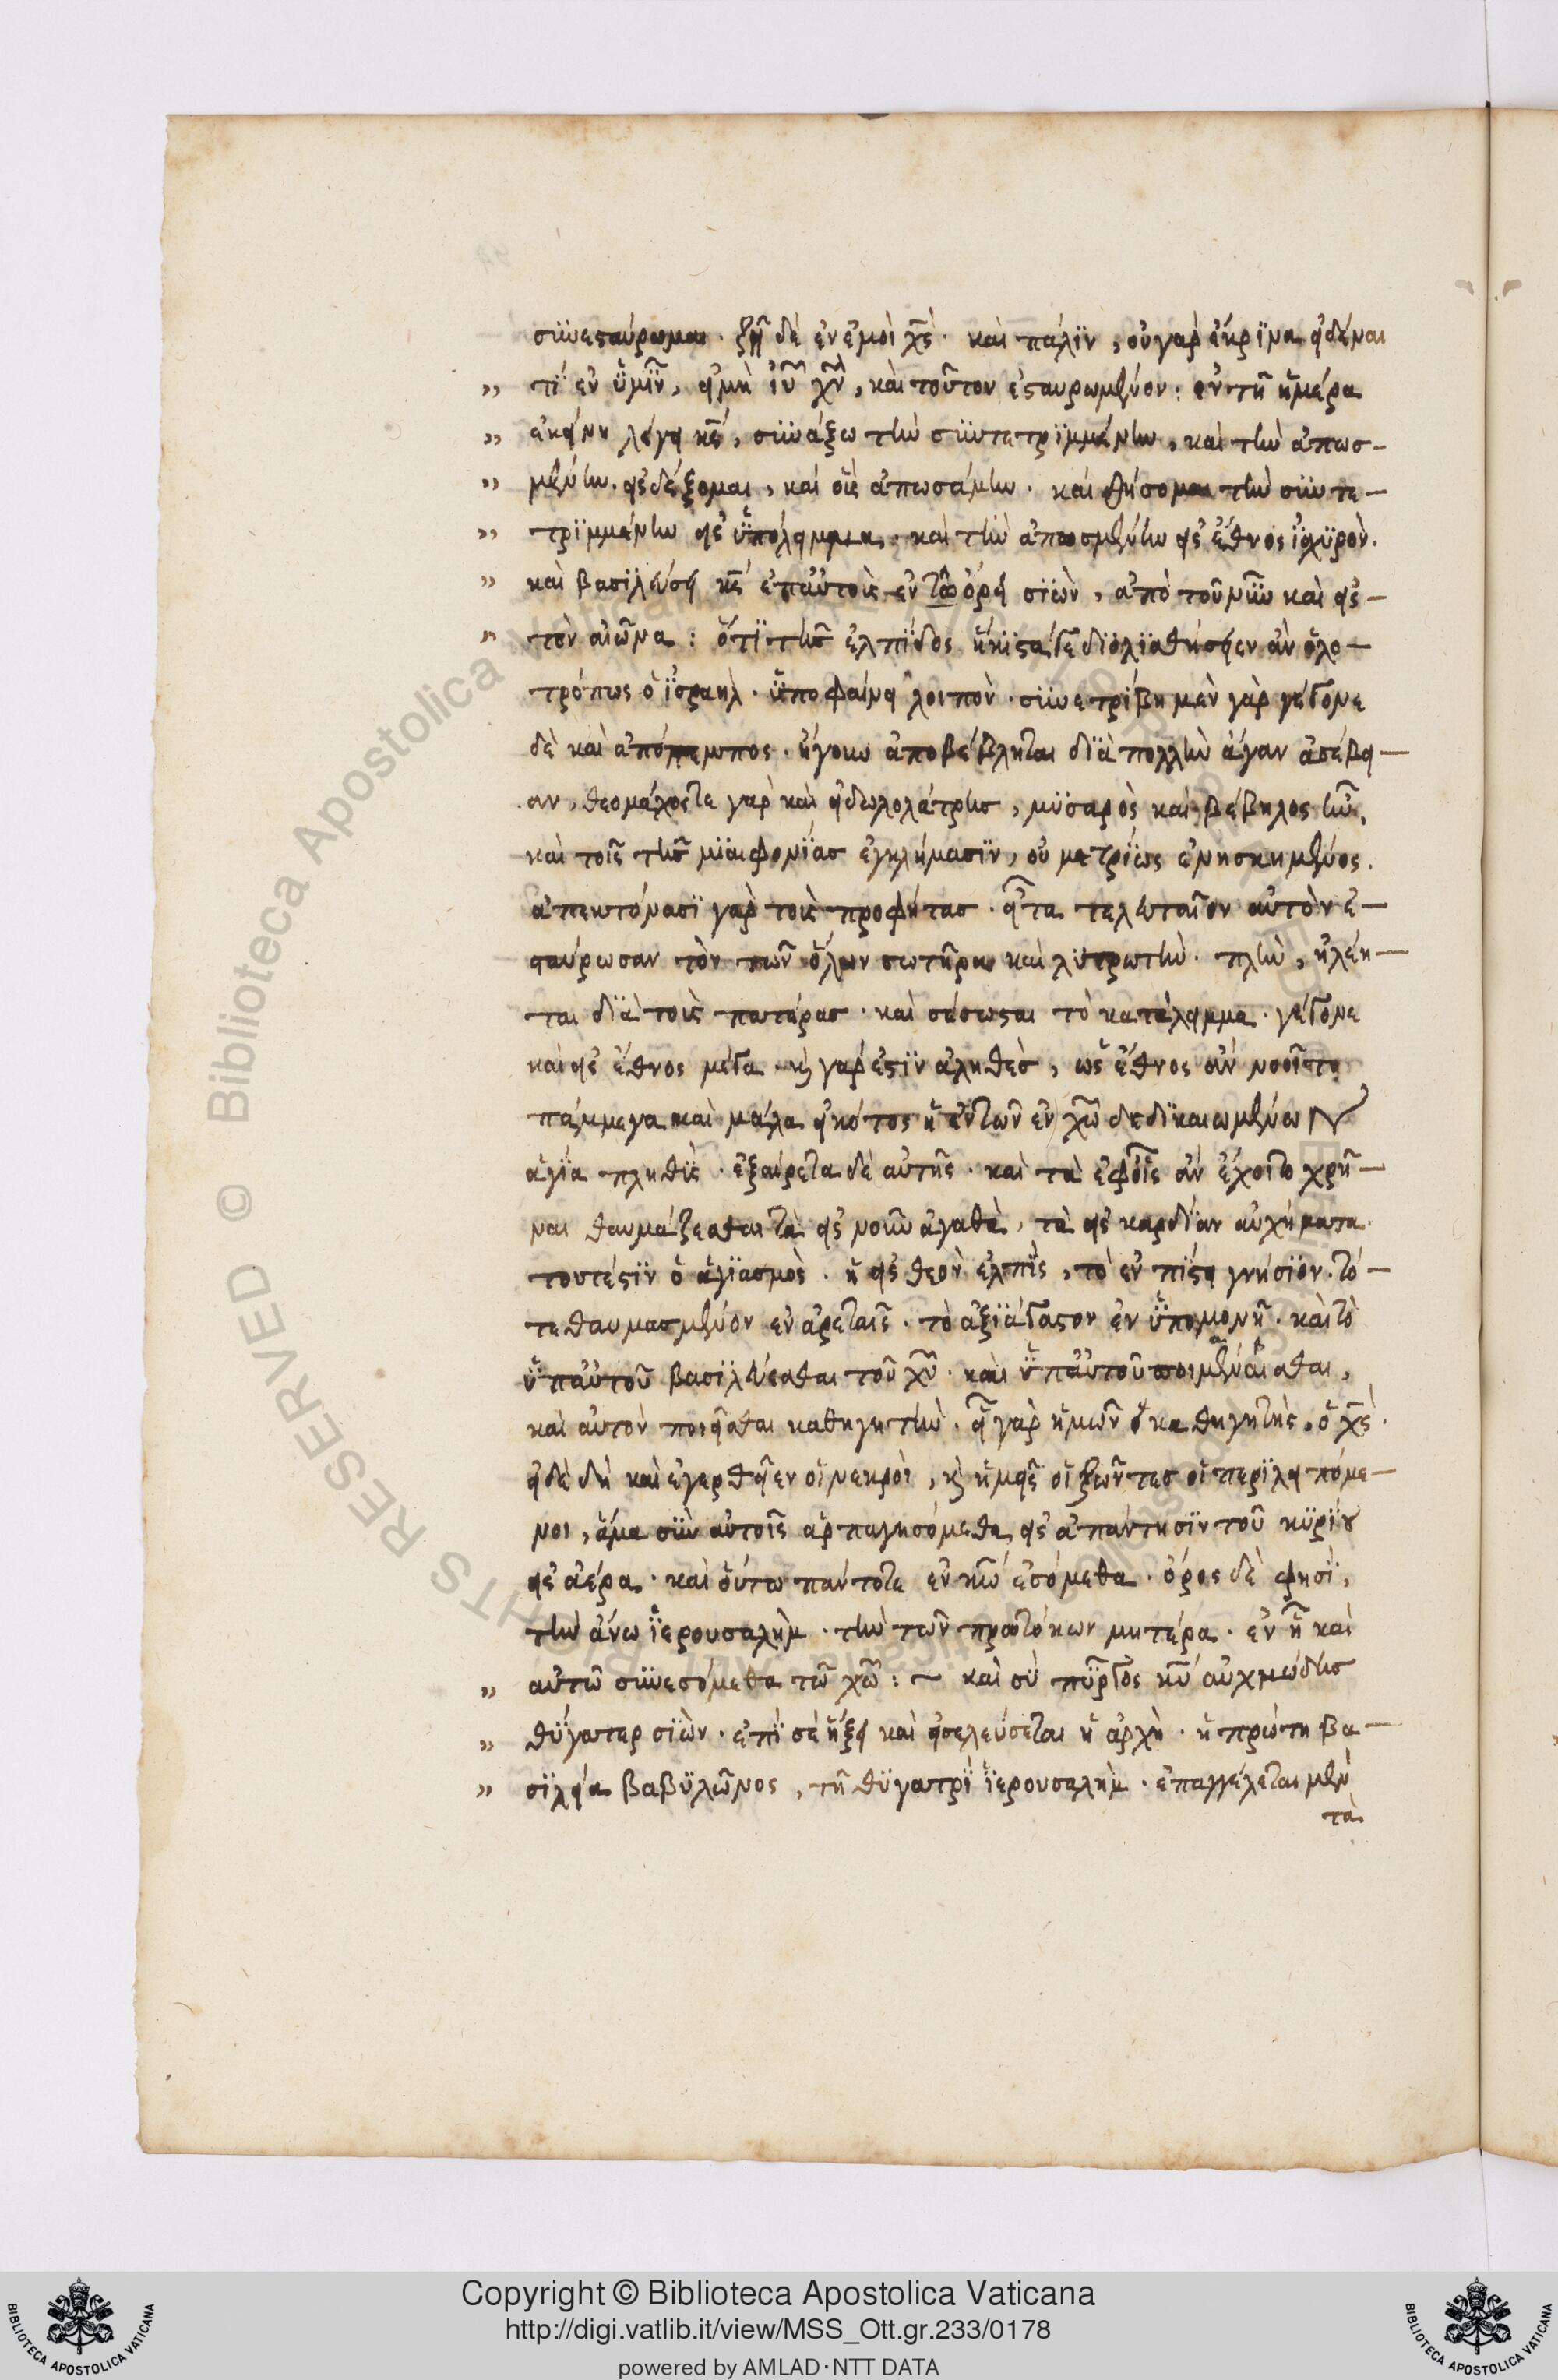 συνεσταύρωμαι · ζῆ δὲ ἐν ἐμοὶ χς · καὶ πάλιν, οὐ γὰρ ἔκρινα εἰδέναι
„ τί ἐν ὑμῖν, εἰ μὴ ιν χν, καὶ τοῦτον ἐσταυρωμένον : ἐν τῇ ἡμέρα
„ ἐκείνη λέγει κς, συνάξω τὴν συντετριμμένην, καὶ τὴν ἀπωσ-
„ μένην εἰσδέξομαι, καὶ οὓς ἀπωσάμην · καὶ θήσομαι τὴν συντε-
„ τριμμένην εἰς ὑπόλειμμα, καὶ τὴν ἀπωσμένην εἰς ἔθνος ἰσχυρόν.
„ καὶ βασιλεύσει κς ἐπ αὐτοὺς ἐν τῷ ὄρει σιὼν, ἀπὸ τοῦ νῦν καὶ εἰς-
„ τὸν αἰῶνα : ὅτι τῆς ἐλπίδος ἥκιστά γε διολισθήσειεν ἂν ὁλο-
τρόπως ὁ ἰσραὴλ · ὑποφαίνει λοιπόν · συνετρίβη μὲν γὰρ γέγονε
δὲ καὶ ἀπόπεμπος · ἤγουν ἀποβέβληται διὰ πολλὴν ἄγαν ἀσέβει-
αν, θεομάχος τε γὰρ καὶ εἰδωλολάτρης, μυσαρὸς καὶ βέβηλος ἦν,
καὶ τοῖς τῆς μιαιφονίας ἐγκλήμασιν, οὐ μετρίως ἐνησκημένος.
ἀπεκτόνασι γὰρ τοὺς προφήτας · εἶτα τελευταῖον αὐτὸν ἐ-
σταύρωσαν τὸν τῶν ὅλων σωτῆρα καὶ λυτρωτήν · πλὴν, ἠλέη-
ται διὰ τοὺς πατέρας · καὶ σέσωσται τὸ κατάλειμμα · γέγονε
καὶ εἰς ἔθνος μέγα · καὶ γάρ ἐστιν ἀληθὲς, ὡς ἔθνος ἂν νοοῖτο
πάμμεγα καὶ μάλα εἰκότως ἡ τῶν ἐν χω δεδικαιωμένων
ἁγία πληθύς · ἐξαίρετα δὲ αὐτῆς · καὶ τὰ ἐφ οἷς ἂν ἔχοιτο χρῆ-
ναι θαυμάζεσθαι τὰ εἰς νοῦν ἀγαθὰ, τὰ εἰς καρδίαν αὐχήματα
τουτέστιν ὁ ἁγιασμὸς · ἡ εἰς θεὸν ἐλπὶς, τὸ ἐν πίστει γνήσιον · τό-
τε θαυμασμένον ἐν ἀρεταῖς · τὸ ἀξιάγαστον ἐν ὑπομονῇ · καὶ τὸ
ὑπ αὐτοῦ βασιλεύεσθαι τοῦ χυ · καὶ ὑπ αὐτοῦ ποιμαίνεσθαι,
καὶ αὐτὸν ποιεῖσθαι καθηγητήν · εἷς γὰρ ἡμῶν ὁ καθηγητὴς, ὁ χς ·
εἰ δὲ δὴ καὶ ἐγερθεῖεν οἱ νεκροὶ, καὶ ἡμεῖς οἱ ζῶντες οἱ περιλειπόμε-
νοι, ἅμα σὺν αὐτοῖς ἁρπαγησόμεθα εἰς ἀπάντησιν τοῦ κυρίου
εἰς ἀέρα · καὶ οὕτω πάντοτε ἐν κω ἐσόμεθα · ὄρος δὲ φησὶ,
τὴν ἄνω ἱερουσαλὴμ · τὴν τῶν πρωτοτόκων μητέρα · ἐν ᾗ καὶ
„ αὐτῶ συνεσόμεθα τῶ χω : ~ καὶ σὺ πύργος κυ αὐχμώδης
„ θύγατερ σιὼν · ἐπὶ σὲ ἥξει καὶ εἰσελεύσεται ἡ ἀρχὴ · ἡ πρώτη βα-
„ σιλεία βαβυλῶνος, τῇ θυγατρὶ ἱερουσαλὴμ · ἐπαγγέλεται μὲν
τὰ
Copyright © Biblioteca Apostolica Vaticana
http://digi.vatlib.it/view/MSS_Ott.gr.233/0178
powered by AMLAD·NTT DATA